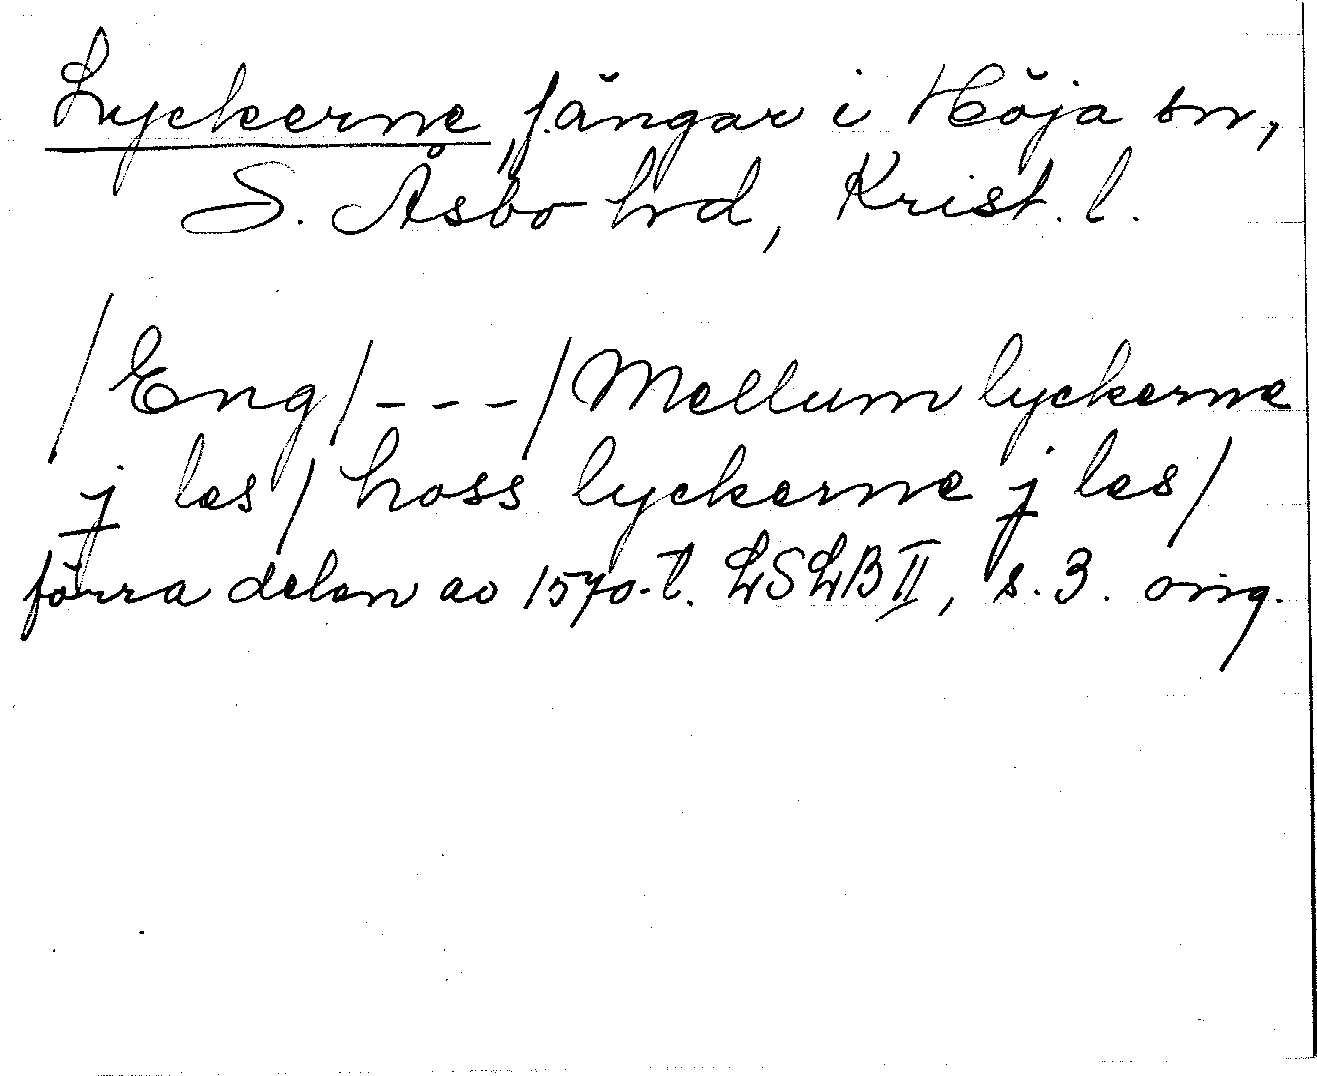 Lyckerne, f. ängar i Höja sn,
S. Åsbo hrd, Krist. l.
/Eng/---/Mellum lyckerne
j les/ hoss lyckerne j les/
förra delen av 1570-t. LSLB II, s. 3. orig.